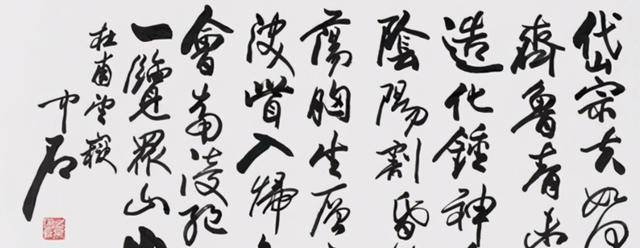 岱宗夫如何
齊魯青未
造化鍾神
陰陽割昏
蕩胸生層
決眥入歸
會當凌絕
一覽眾山
杜甫望嶽
中石